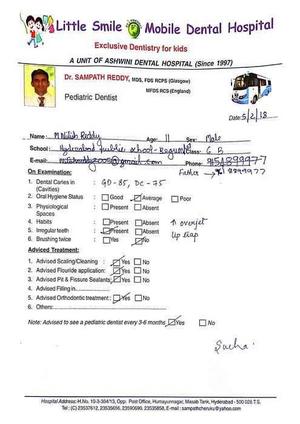 Little Smile Mobile Dental Hospital
Exclusive Dentistry for kids
A UNIT OF ASHWINI DENTAL HOSPITAL (Since 1997)
Dr. SAMPATH REDDY, MDS, FDS RCPS (Glasgow)
MFDS RCS (England)
Pediatric Dentist
Date: 5/2/18
Name: M Nitish Reddy Age: 11 Sex: Male
School: Hyderabad public school - Class: 6 B
E-mail: Phone:
Father
On Examination:
1. Dental Caries in (Cavities) : GD-85, DC-75
2. Oral Hygiene Status : Good Average Poor
3. Physiological Spaces : Present Absent
4. Habits : Present Absent ↑ overjet
5. Irregular teeth : Present Absent
6. Brushing twice : Yes No
Adviced Treatment:
1. Advised Scaling/Cleaning : Yes No
2. Advised Flouride application: Yes No
3. Advised Pit & Fissure Sealants Yes No
4. Advised Filling in
5. Advised Orthodontic treatment : Yes No
6. Others:
Note: Advised to see a pediatric dentist every 3-6 months Yes No
Hospital Address: H.No. 10-3-304/13, Opp. Post Office, Humayunnagar, Masab Tank, Hyderabad - 500 028 T.S.
Tel: (C) 23537612, 23535656, 23590690, 23535858, E-mail : sampathcheruku@yahoo.com